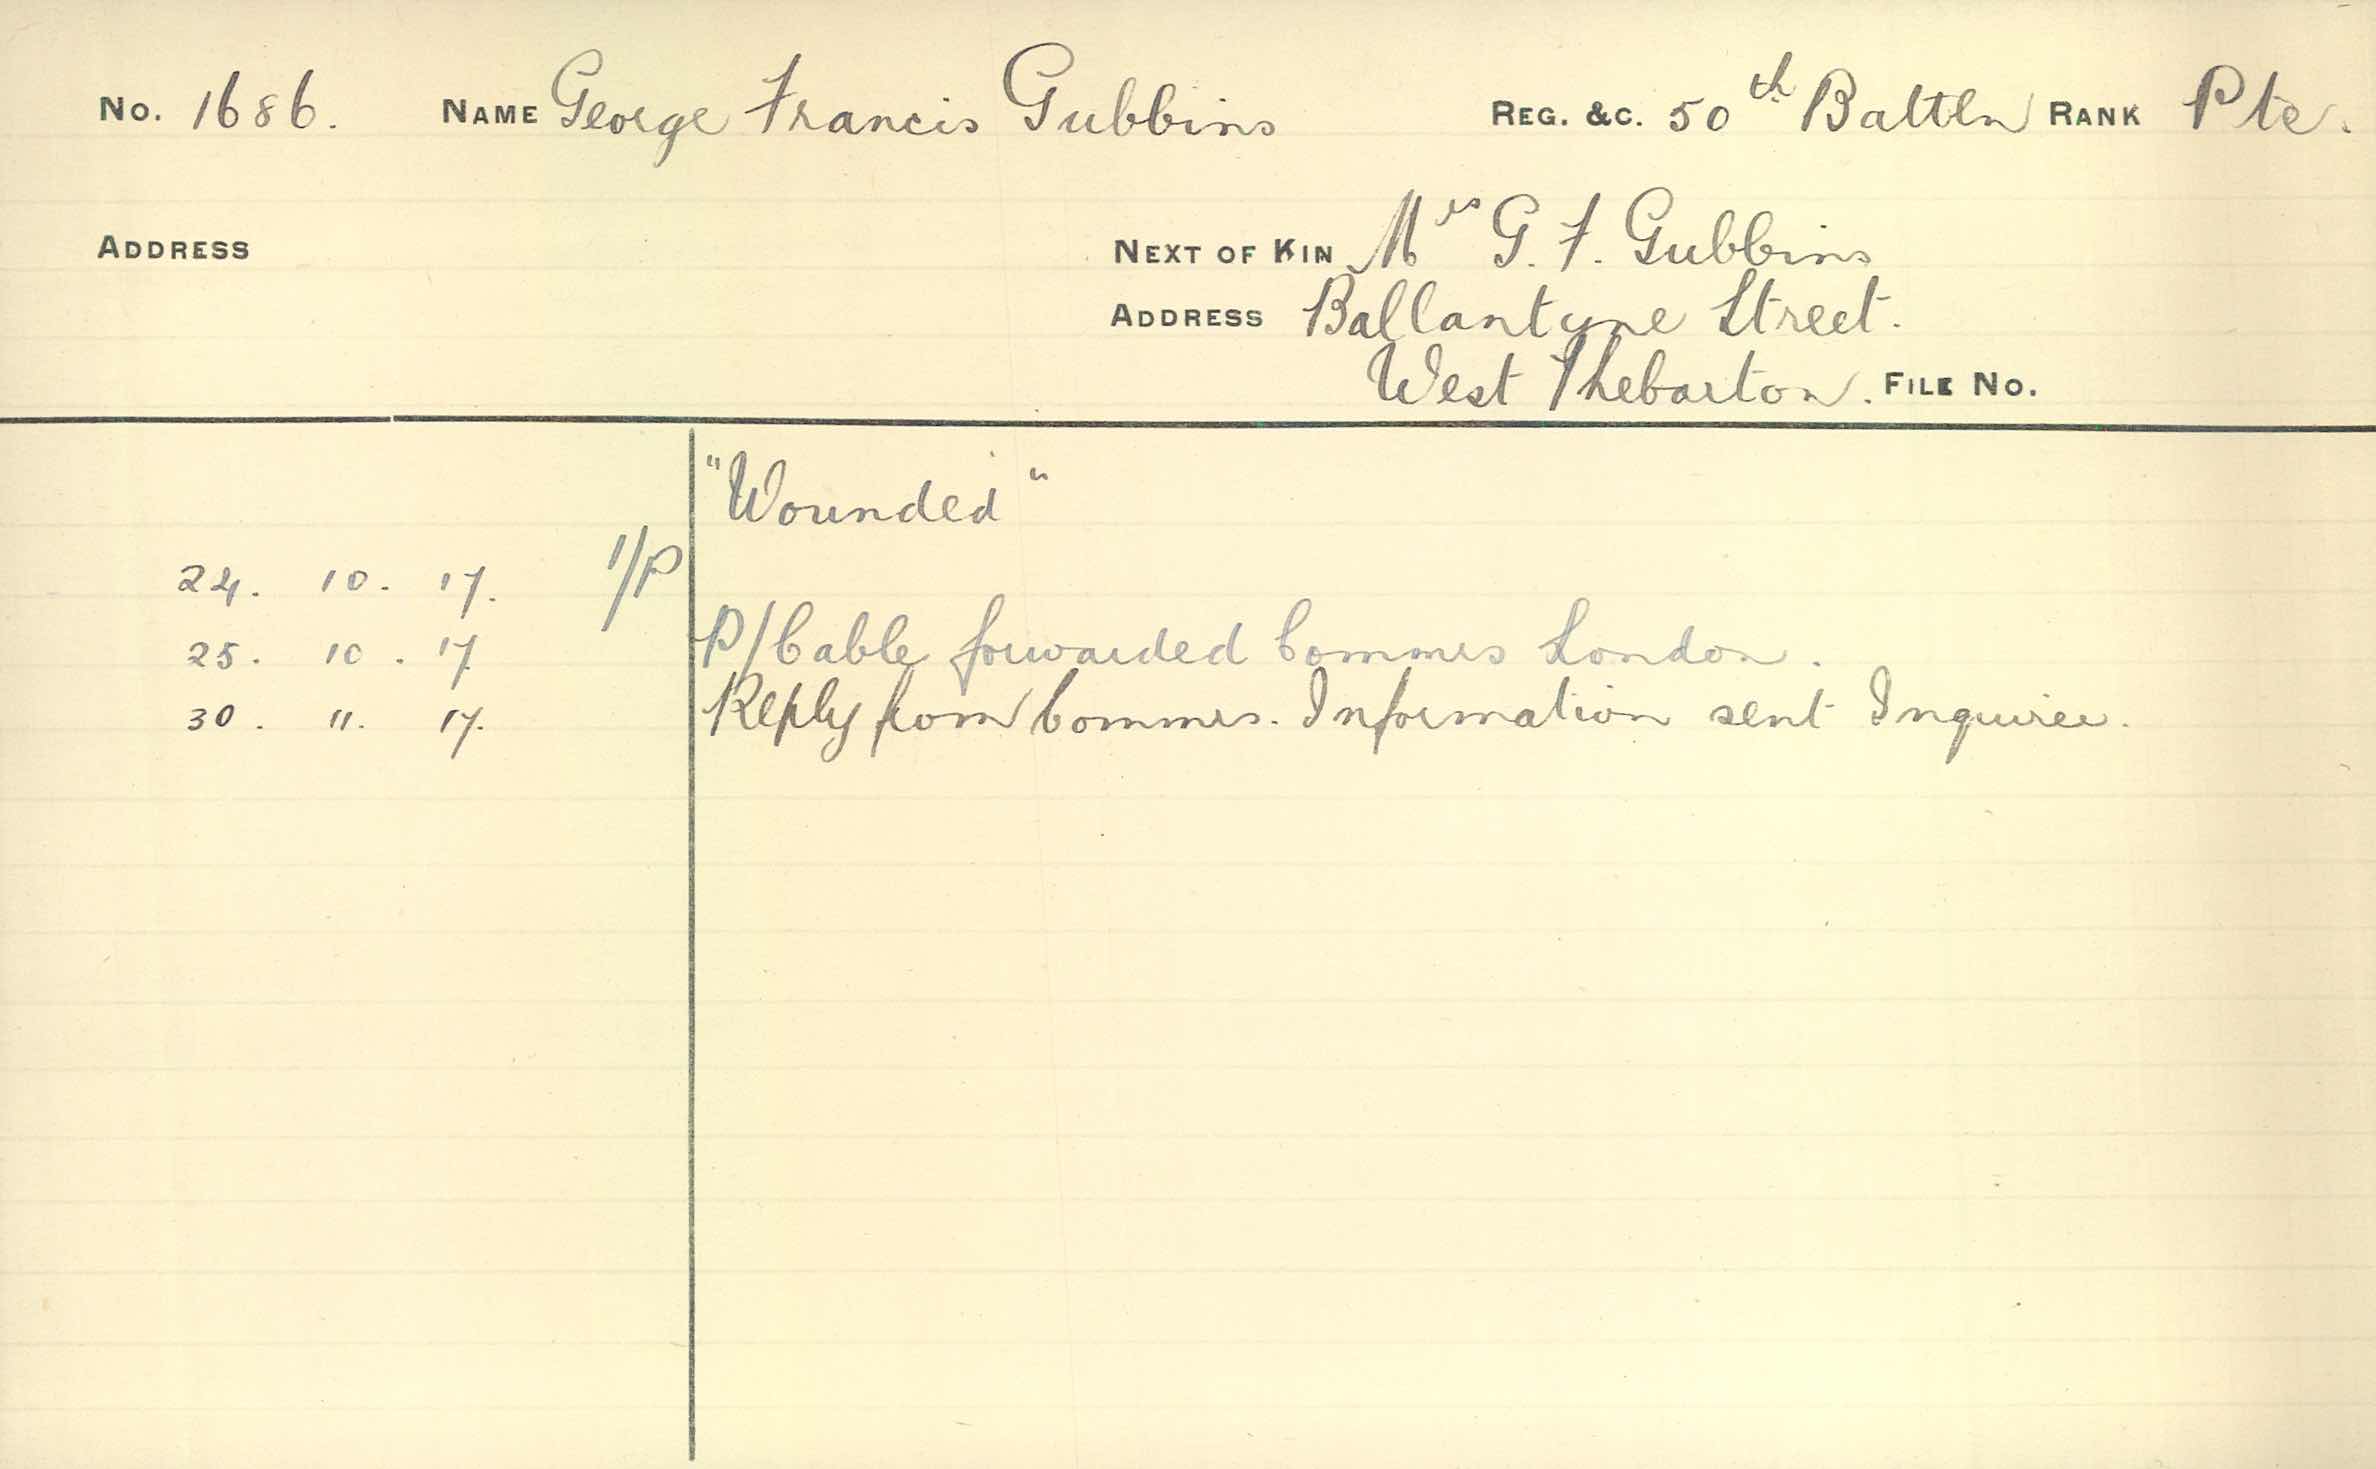 No. 1686. NAME George Francis Gubbins REG. &C. 50th Battln RANK Pte.
ADDRESS NEXT OF KIN Mrs G. F. Gubbins
ADDRESS Ballantyne Street.
West Thebarton. FILE No.
"Wounded"
24. 10. 17. 1/P
25. 10. 17 P/Cable forwarded Commrs London.
30. 11. 17. Reply from Commrs. Information sent Inquirer.